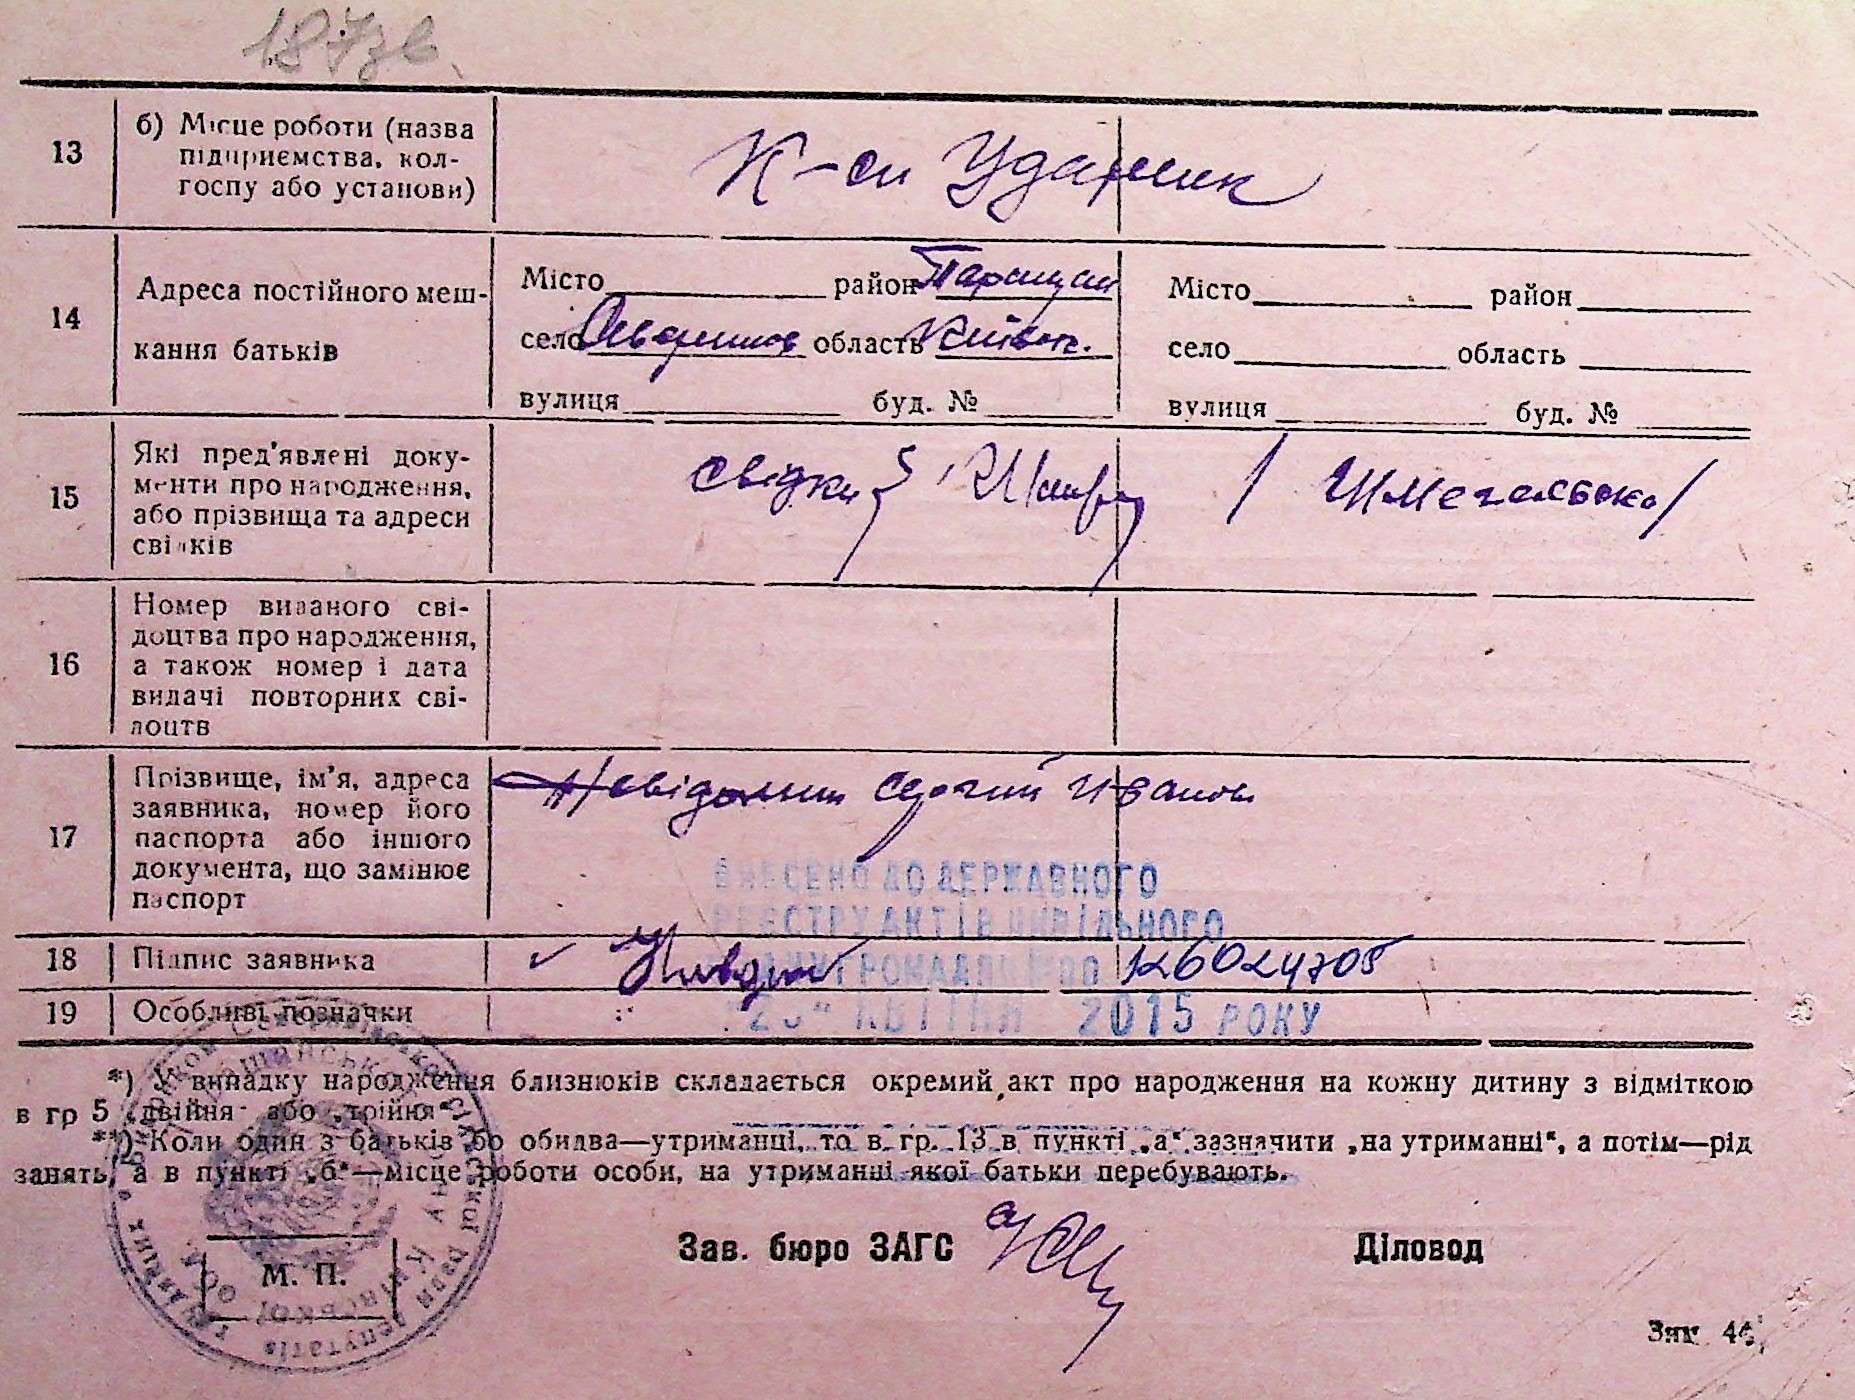 187зв
13
б) Місце роботи (назва
підприємства, кол-
госпу або установи)
К-сп Ударник
14
Адреса постійного меш-
кання батьків
Місто район
село область Київськ.
вулиця буд. №
Місто район
село область
вулиця буд. №
15
Які пред'явлені доку-
менти про народження,
або прізвища та адреси
свідків
свідки
16
Номер виданого сві-
доцтва про народження,
а також номер і дата
видачі повторних сві-
доцтв
17
Прізвище, ім'я, адреса
заявника, номер його
паспорта або іншого
документа, що замінює
паспорт
Невідомий Сергій Іванов
ВНЕСЕНО ДО ДЕРЖАВНОГО
РЕЄСТРУ АКТІВ ЦИВІЛЬНОГО
СТАНУ ГРОМАДЯН ПО 126024705
КВІТНЯ 2015 РОКУ
18
Підпис заявника
19
Особливі позначки
*) У випадку народження близнюків складається окремий акт про народження на кожну дитину з відміткою
в гр 5 „двійня" або „трійня"
**) Коли один з батьків бо обидва—утриманці, то в гр. 13 в пункті „а" зазначити „на утриманні", а потім—рід
занять, а в пункті „б"—місце роботи особи, на утриманні якої батьки перебувають.
Зав. бюро ЗАГС
Діловод
М. П.
Зак 44